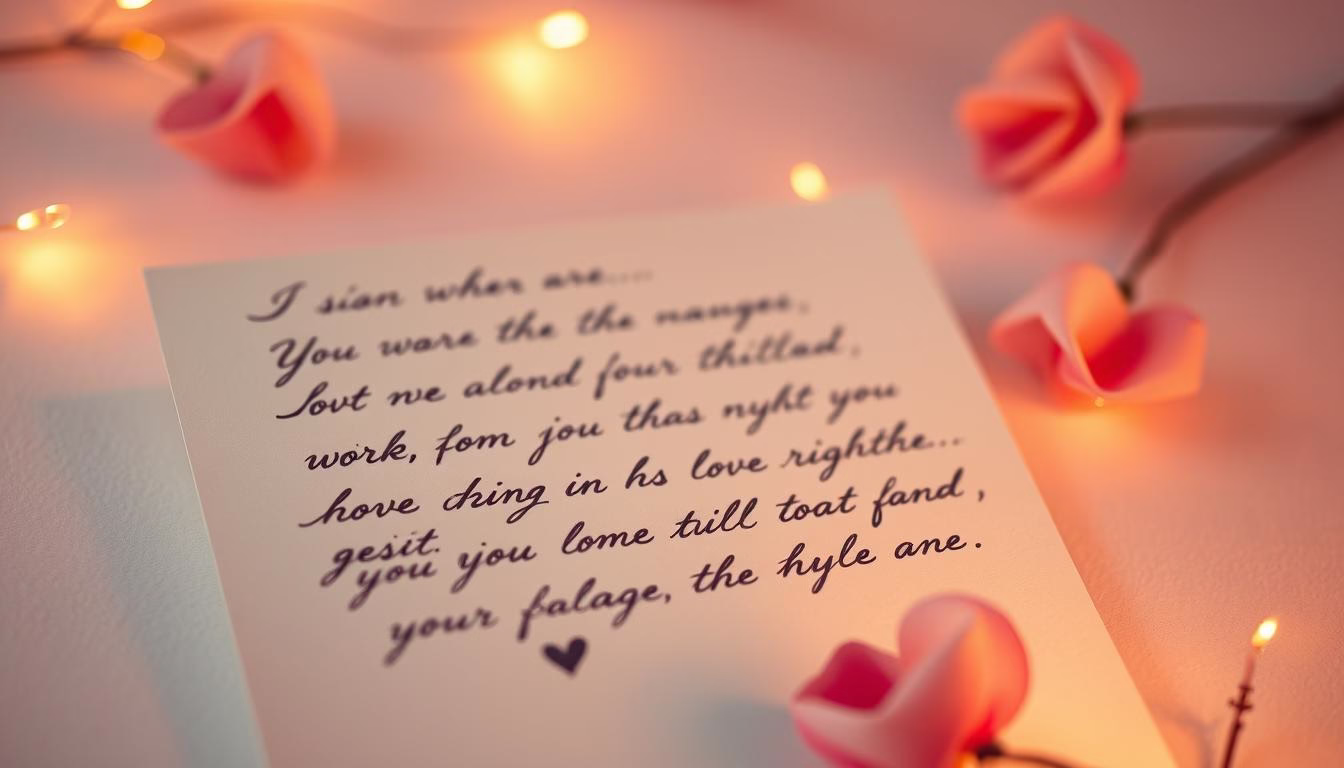 I sian wher are....
You ware the the nanges,
Sovt we alond four thitlad,
work, fom jou thas nyht you
hove ching in hs love righthe...
gesit.
you you lome tuill toat fand,
your falage, the hyle ane.